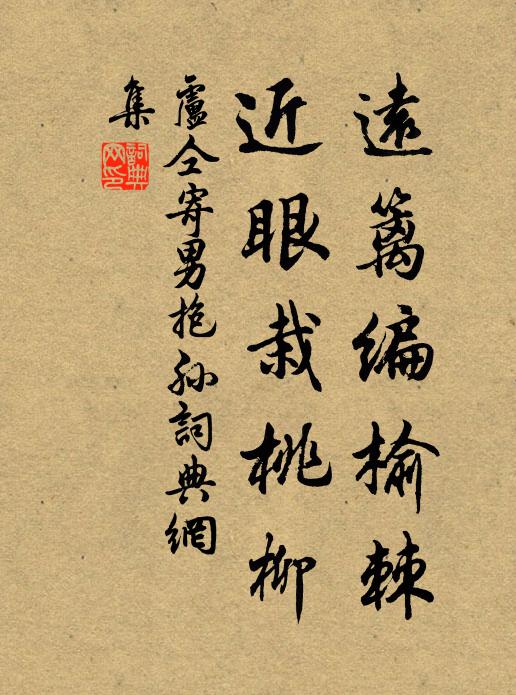 遠籬編榆棘
近眼栽桃柳
盧仝寄男抱孫詞典網
集
詞典網印